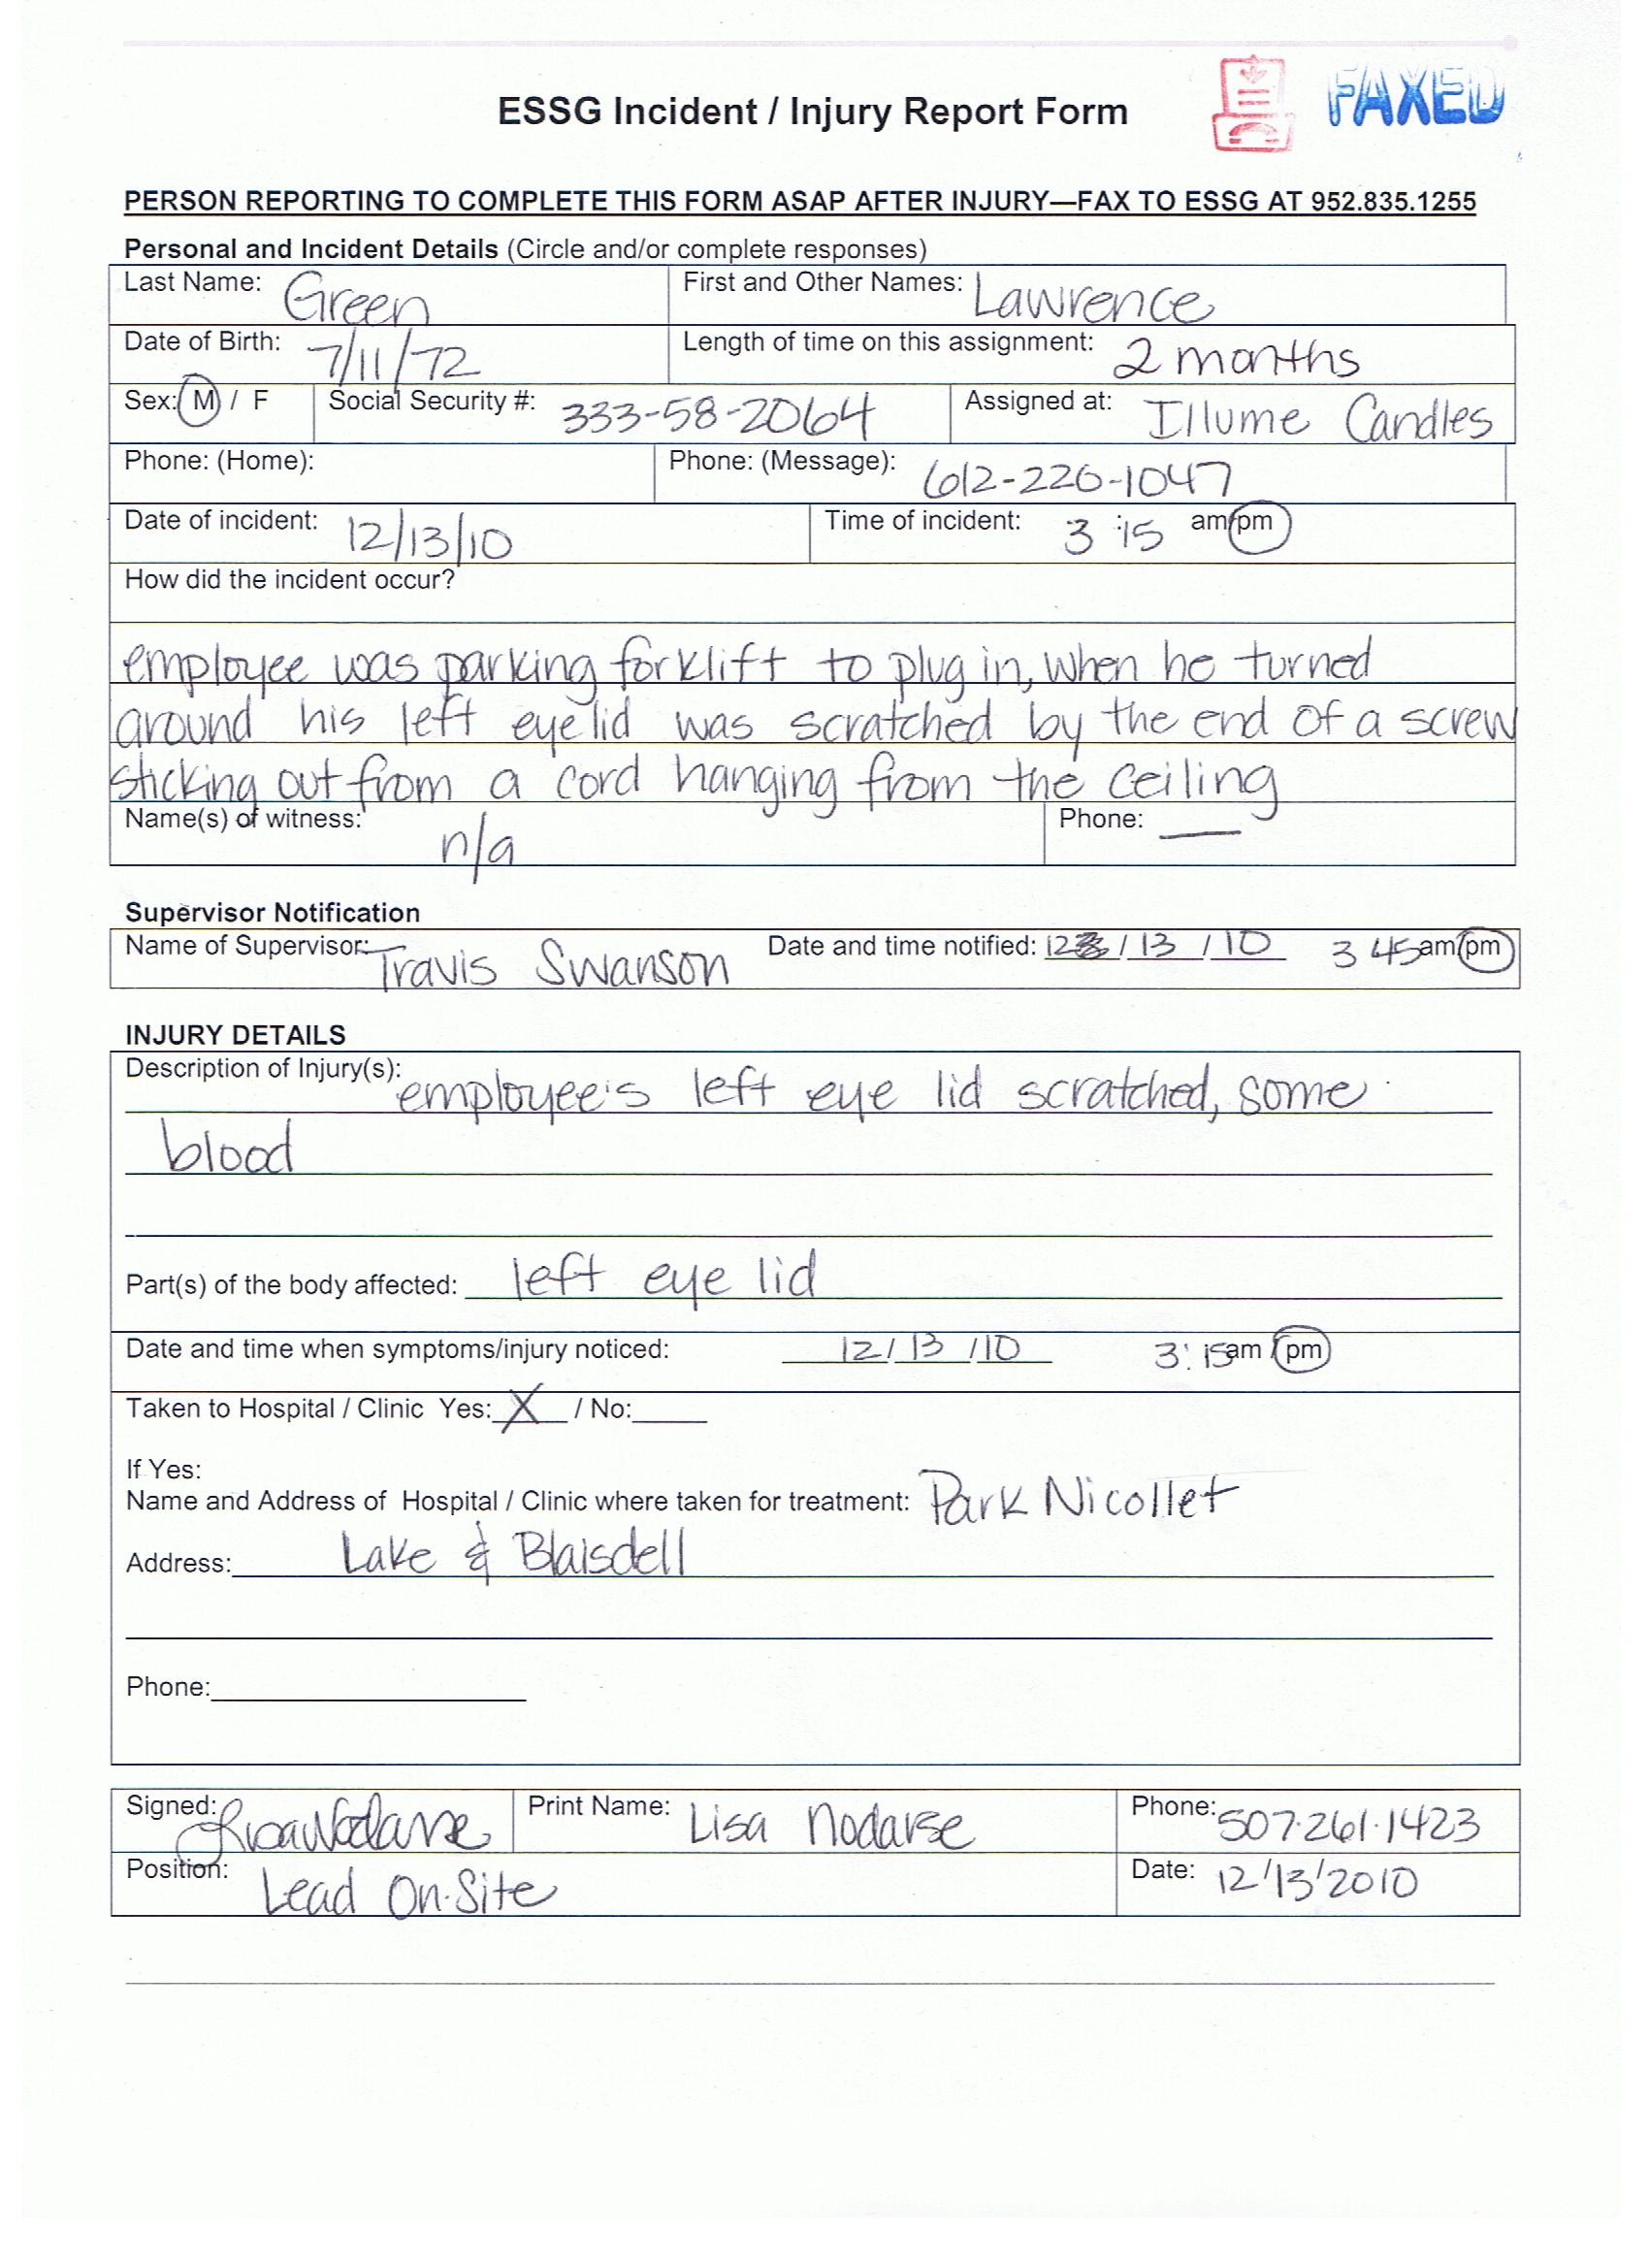 ESSG Incident / Injury Report Form
FAXED
PERSON REPORTING TO COMPLETE THIS FORM ASAP AFTER INJURY—FAX TO ESSG AT 952.835.1255
Personal and Incident Details (Circle and/or complete responses)
Last Name: Green First and Other Names: Lawrence
Date of Birth: 7/11/72 Length of time on this assignment: 2 months
Sex: M / F Social Security #: 333-58-2064 Assigned at: Illume Candles
Phone: (Home): Phone: (Message): 612-226-1047
Date of incident: 12/13/10 Time of incident: 3:15 am/pm
How did the incident occur?
employee was parking forklift to plug in, when he turned
around his left eyelid was scratched by the end of a screw
sticking out from a cord hanging from the ceiling
Name(s) of witness: n/a Phone: —
Supervisor Notification
Name of Supervisor: Travis Swanson Date and time notified: 12/13/10 3 45 am/pm
INJURY DETAILS
Description of Injury(s): employee's left eye lid scratched, some
blood
Part(s) of the body affected: left eye lid
Date and time when symptoms/injury noticed: 12/13/10 3:15 am / pm
Taken to Hospital / Clinic Yes: X / No:
If Yes:
Name and Address of Hospital / Clinic where taken for treatment: Park Nicollet
Address: Lake & Blaisdell
Phone:
Signed: Lisa Nodarse Print Name: Lisa Nodarse Phone: 507.261.1423
Position: Lead On-Site Date: 12/13/2010